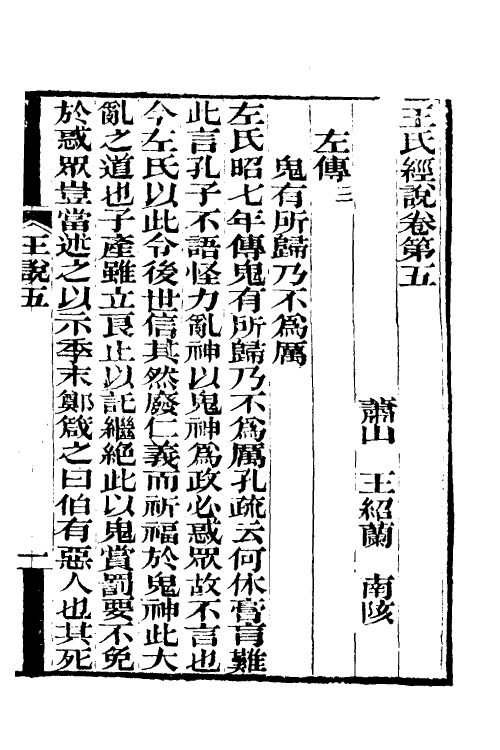 王氏經說卷第五
蕭山 王紹蘭 南陔
左傳三
鬼有所歸乃不為厲
左氏昭七年傳鬼有所歸乃不為厲孔疏云何休膏肓難
此言孔子不語怪力亂神以鬼神為政必惑眾故不言也
今左氏以此令後世信其然廢仁義而祈福於鬼神此大
亂之道也子產雖立良止以託繼絕此以鬼賞罰要不免
於惑眾豈當述之以示季末鄭箴之曰伯有惡人也其死
王說五
一